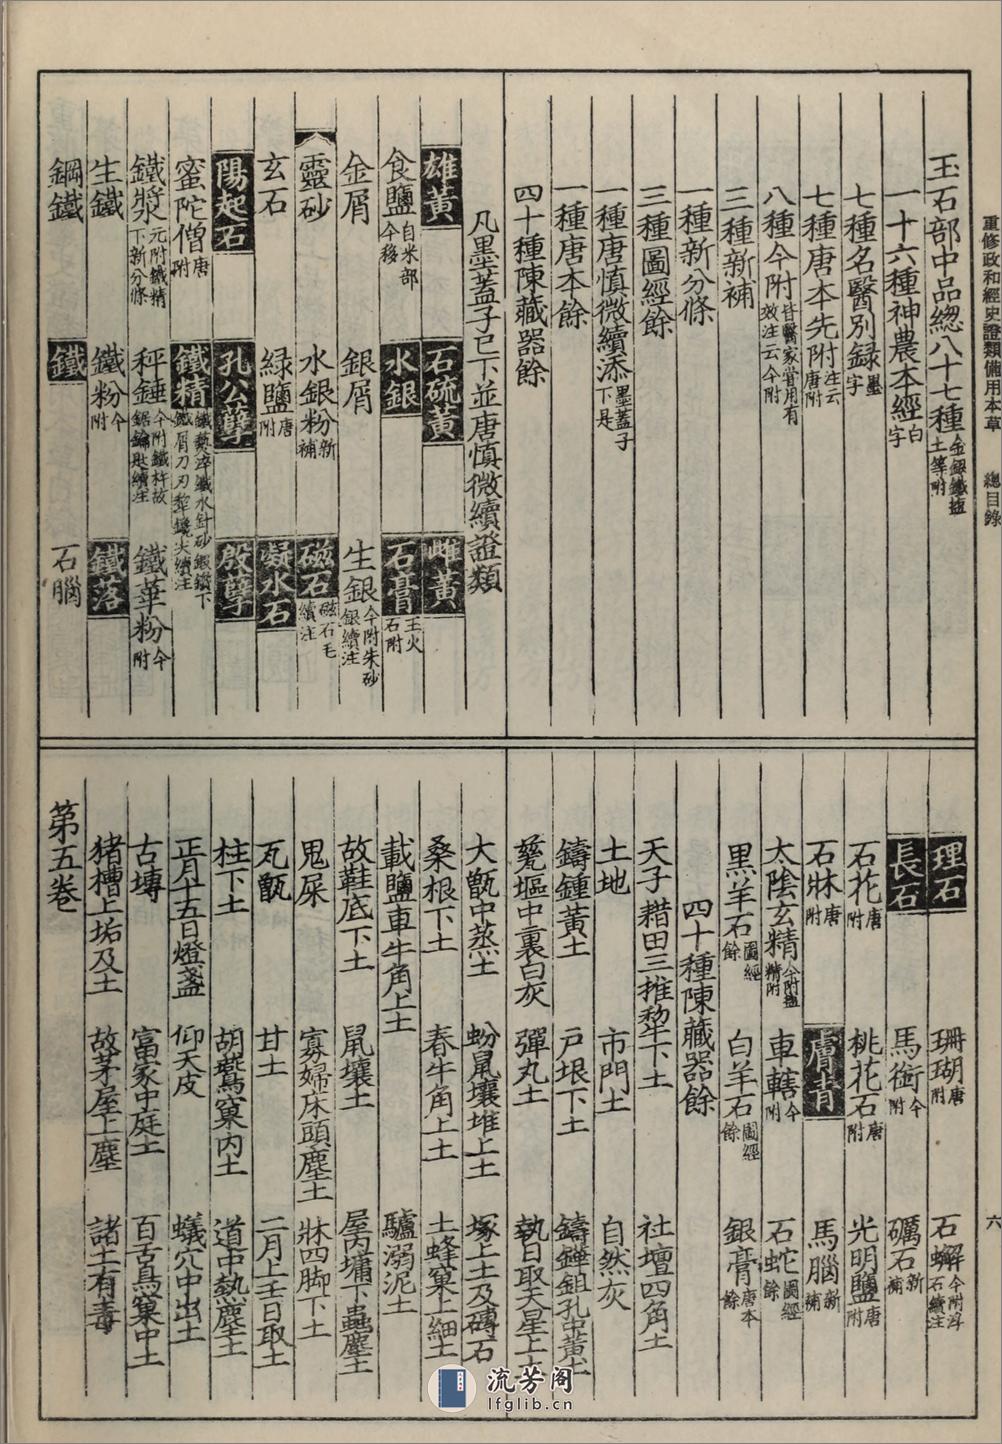 重修政和經史證類備用本草 總目錄 六
玉石部中品總八十七種金銀鐵鹽土等附
一十六種神農本經白字
七種名醫別録墨字
七種唐本先附注云唐附
八種今附皆醫家嘗用有效注云今附
三種新補
一種新分條
三種圖經餘
一種唐慎微續添墨蓋子下是
一種唐本餘
四十種陳藏器餘
凡墨蓋子已下並唐慎微續證類
雄黃 石硫黃 雌黃
食鹽自米部今移 水銀 石膏玉火石附
金屑 銀屑 生銀今附朱砂銀續注
靈砂 水銀粉新補 磁石磁石毛續注
玄石 緑鹽唐附 凝水石
陽起石 孔公孽 殷孽
蜜陀僧唐附 鐵精鐵爇淬鐵水針砂鍛鐵下鐵屑刀刃犂鑱尖續注
鐵漿元附鐵精下新分條 秤錘今附鐵杵故鋸鑰匙續注 鐵華粉今附
生鐵 鐵粉今附 鐵落
鋼鐵 鐵 石腦
理石 珊瑚唐附 石蠏今附浮石續注
長石 馬銜今附 礪石新補
石花唐附 桃花石唐附 光明鹽唐附
石牀唐附 膚青 馬腦新補
太陰玄精今附鹽精附 車轄今附 石蛇圖經餘
黑羊石圖經餘 白羊石圖經餘 銀膏唐本餘
四十種陳藏器餘
天子耤田三推犂下土 社壇四角土
土地 市門土 自然灰
鑄鍾黃土 戶垠下土 鑄鏵鉏孔中黃土
甆堛中裏白灰 彈丸土 執日取天星上土
大甑中蒸土 蚡鼠壤堆上土 塚上土及磚石
桑根下土 春牛角上土 土蜂窠上細土
載鹽車牛角上土 驢溺泥土
故鞋底下土 鼠壤土 屋内墉下蟲塵土
鬼屎 寡婦床頭塵土 牀四脚下土
瓦甑 甘土 二月上壬日取土
柱下土 胡鷰窠內土 道中熱塵土
正月十五日燈盞 仰天皮 蟻穴中出土
古塼 富家中庭土 百舌鳥窠中土
猪槽上垢及土 故茅屋上塵 諸土有毒
第五卷
流芳阁
lfglib.cn